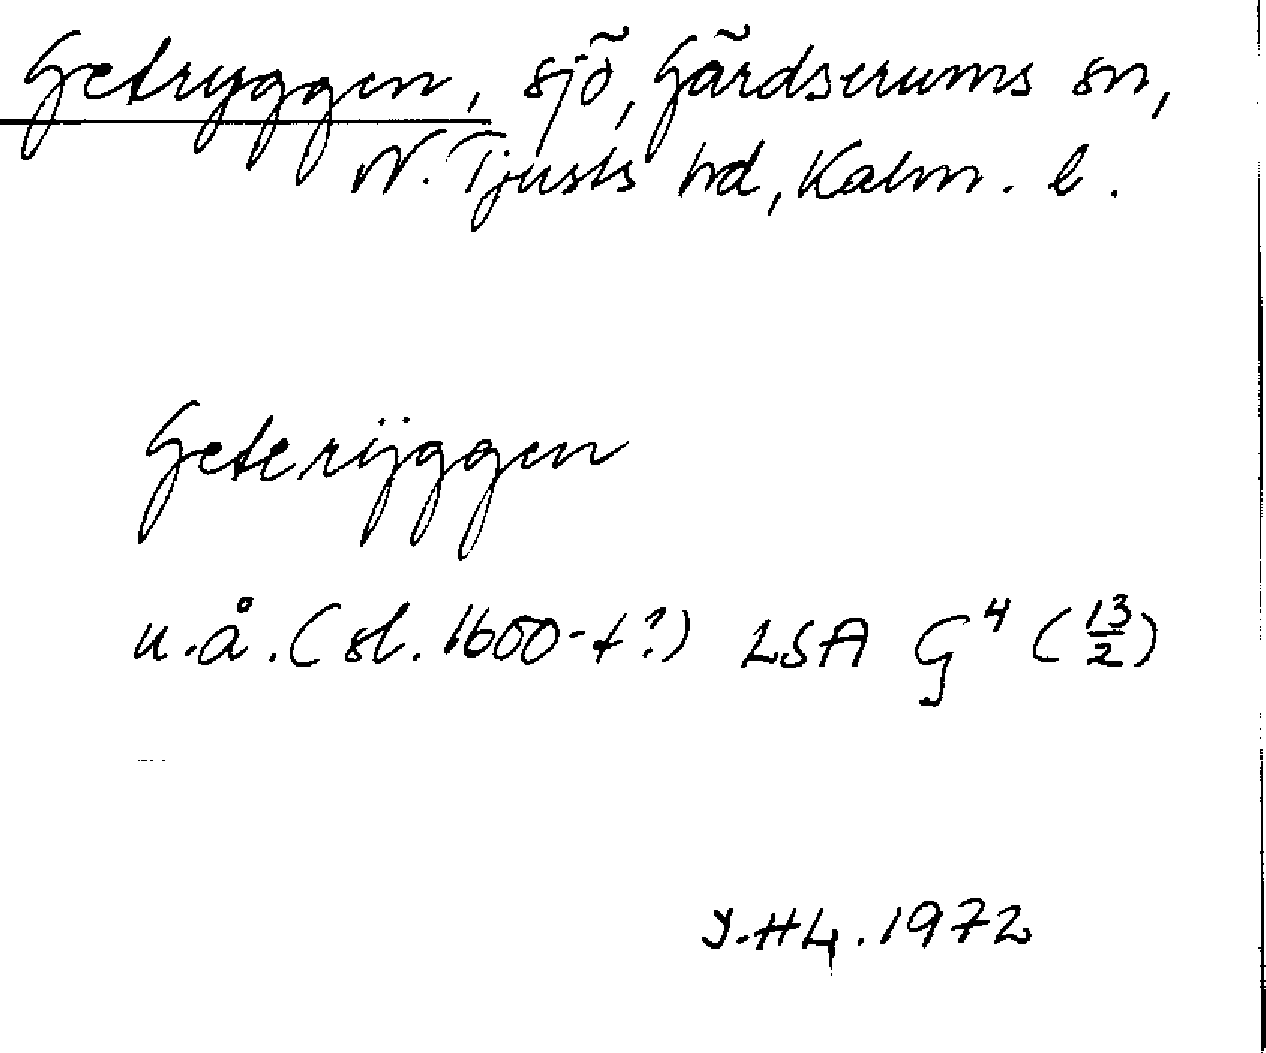 Getryggen, sjö, Gärdserums sn,
N. Tjusts hd, Kalm. l.
Geterijggen
u.å. (sl. 1600-t?) LSA G⁴ (13/2)
1972